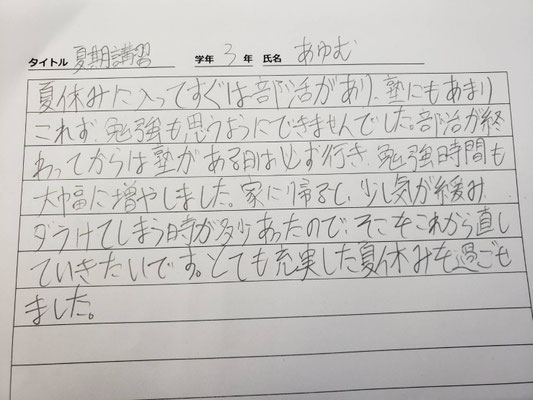 タイトル 夏期講習 学年 3 年 氏名 あゆむ
夏休みに入ってすぐは部活があり、塾にもあまり
これず、勉強も思うようにできませんでした。部活が終
わってからは塾がある日は必ず行き、勉強時間も
大幅に増やしました。家に帰ると、少し気が緩み、
ダラけてしまう時が多少あったので、そこをこれから直し
ていきたいです。とても充実した夏休みを過ごせ
ました。